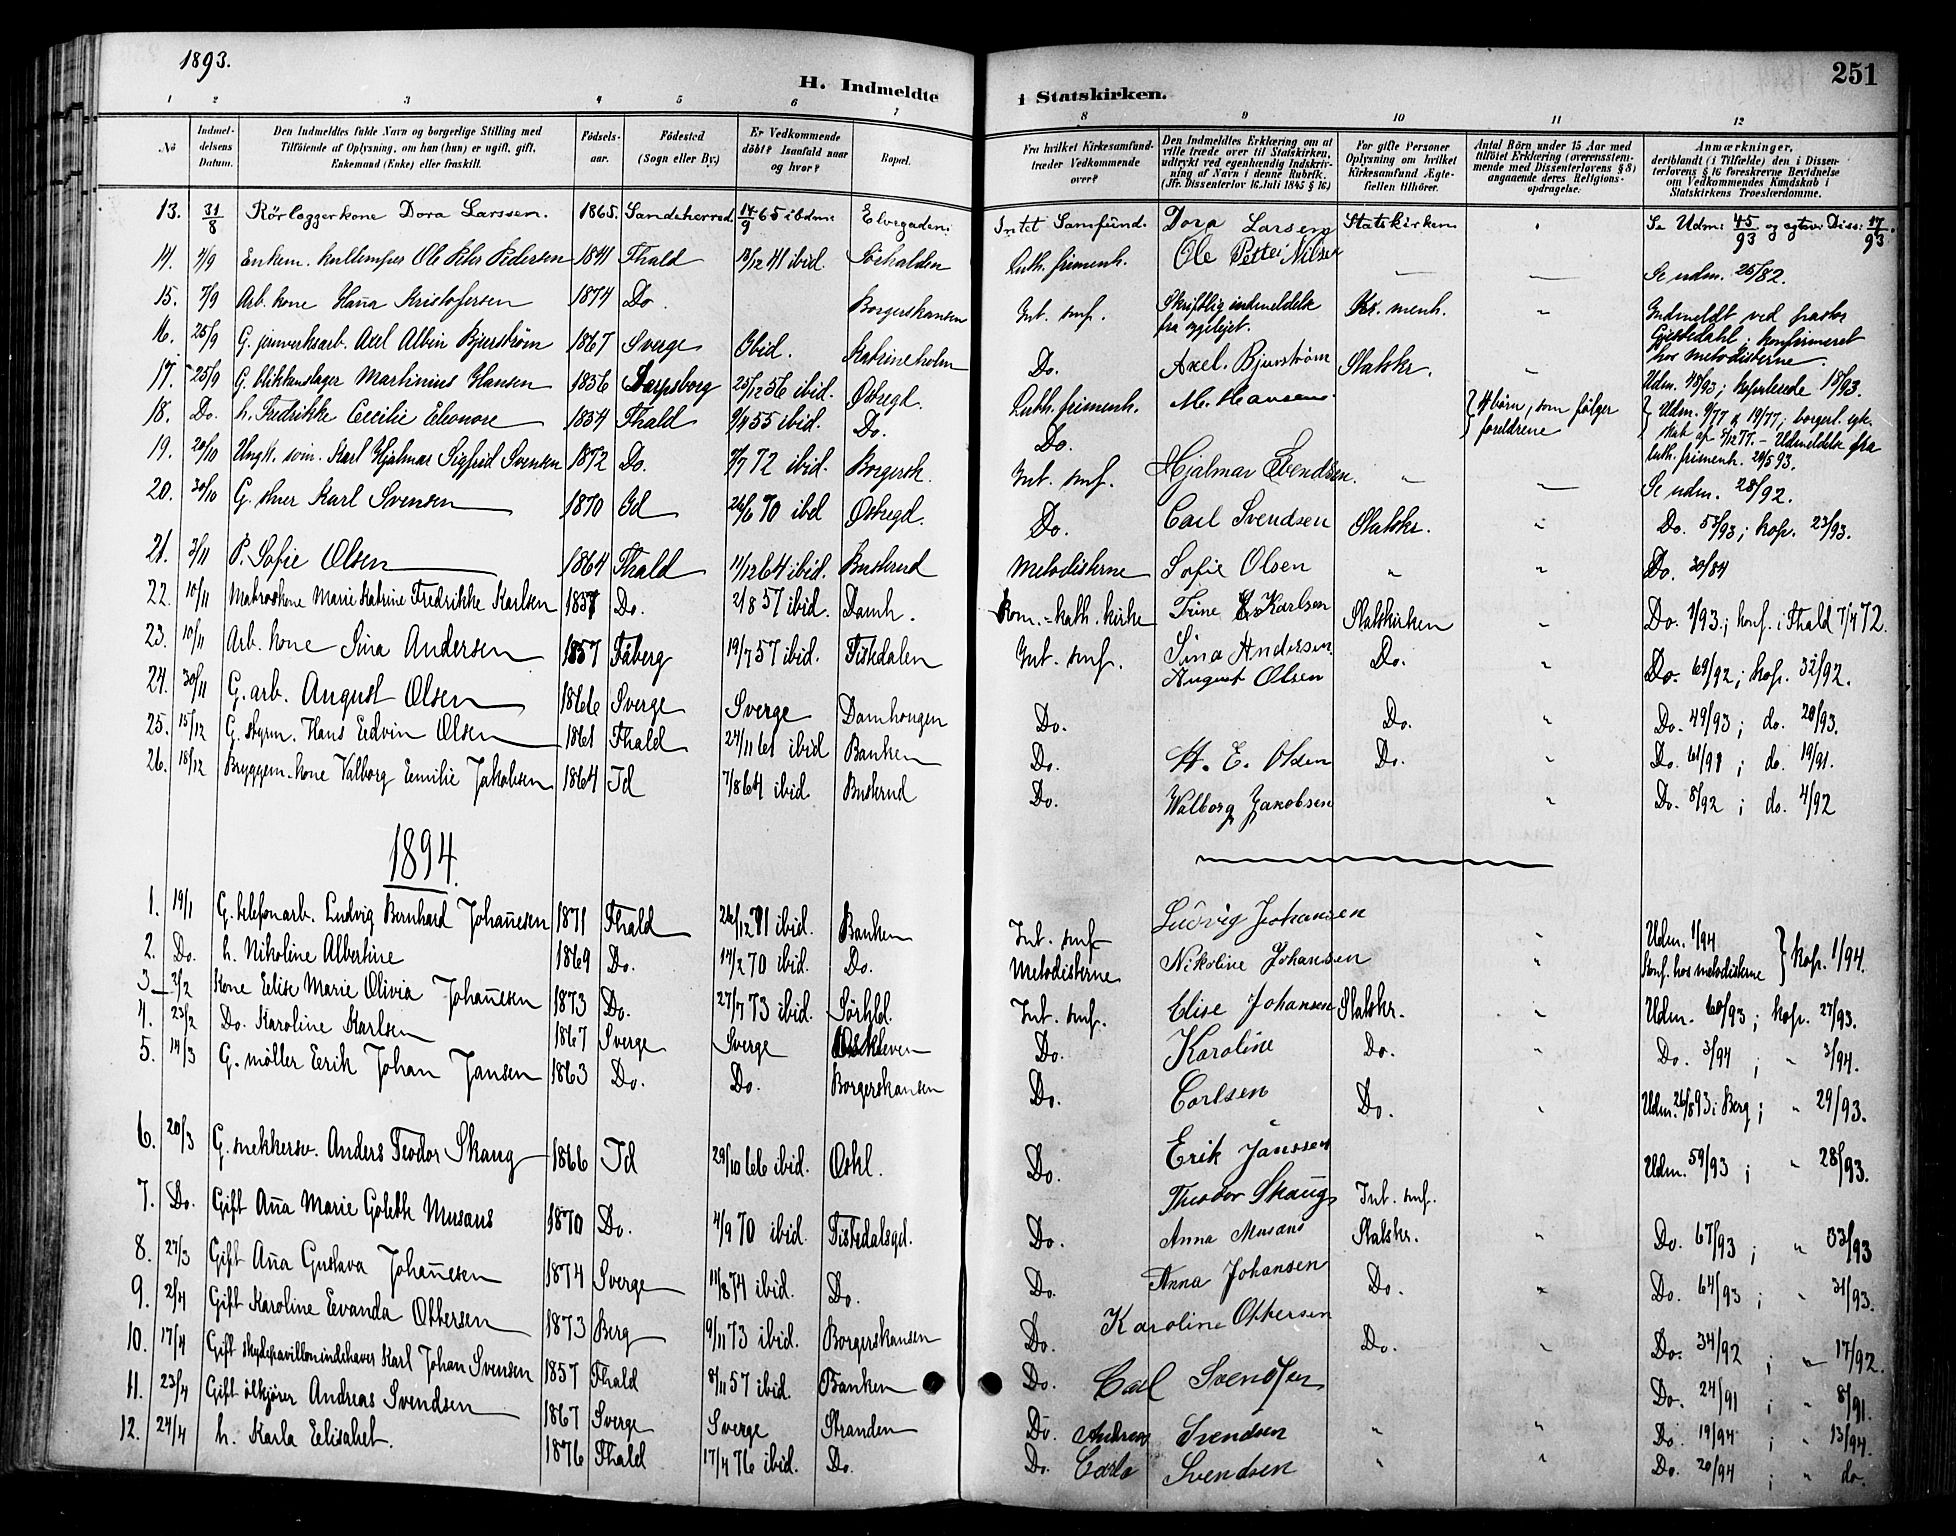 1893.
251
H. Indmeldte i Statskirken.
1 2 3 4 5 6 7 8 9 10 11 12
No
Indmeldelsens Datum.
Den Indmeldtes fulde Navn og borgerlige Stilling med Tilföiende af Oplysning, om han (hun) er ugift, gift, Enkemand (Enke) eller fraskilt.
Födselsaar.
Födested (Sogn eller By.)
Er Vedkommende döbt? Isaafald naar og hvor?
Bopæl.
Fra hvilket Kirkesamfund træder Vedkommende over?
Den Indmeldtes Erklæring om at ville træde over til Statskirken, udtrykt ved egenhændig Indskrivning af Navn i denne Rubrik. (Jfr. Dissenterlov 16. Juli 1845 § 16.)
For gifte Personer Oplysning om hvilket Kirkesamfund Ægtefællen tilhörer.
Antal Börn under 15 Aar med tilföiet Erklæring (overensstemmende med Dissenterlovens § 8) angaaende deres Religionsopdragelse.
Anmærkninger, deriblandt (i Tilfælde) den i Dissenterlovens § 16 foreskrevne Bevidnelse om Vedkommendes Kundskab i Statskirkens Troeslærdomme.
13. 31/8 Rörleggerkone Dora Larssen. 1865. Sandeherred 14/9 65 ibdm: Elvegaden: Intet Samfund. Dora Larsen Statskirken " Se Udm: 45/93 og egtev. Diss: 17/93.
14. 4/9 Enkem. Ole Peter Pedersen 1841 Fhald 13/12 41 ibid. Sörhalden Luth. frimenh. Ole Petter Nilsen — — Se udm. 25/82.
15. 7/9 Arb. kone Hana Kristofersen 1874 Do. Borgerskansen Int. smf. Skriftlig indmeldelse fra sygelejet. Kr. menh. " Indmeldt ved pastor Gjessedahl; konfirmeret hos metodisterne.
16. 25/9 G. jernverksarb. Axel Albin Bjurström 1867 Sverge Ibid. Katrineholm Do. Axel. Bjurström Statskr. " Udm. 45/93; kopulerede 18/93.
17. 25/9 G. blikkenslager Martinius Hansen 1856 Sarpsborg 25/12 56 ibid. Östregd. Luth. frimenh. M. Hansen } 4 börn, som fölger foreldrene } Udm. 9/77 & 19/77; borgerl. egteskab af 5/12 77. — Udmeldelse fra luth. frimenh. 29/5 93.
18. Do. h. Fredrikke Cecilie Eleonore 1854 Fhald 9/4 55 ibid. Do. Do.
19. 20/10 Ungk. svin. Karl Hjalmar Sigfrid Svensen 1872 Do. 7/7 72 ibid. Borgersk. Int. smf. Hjalmar Svendsen. " — Se udm. 28/92.
20. 30/10 G. Karl Svensen 1870 Id 26/6 70 ibid Östregd. Do. Carl Svendsen Statskr. " Do. 53/93; kop. 23/93.
21. 3/11 P. Sofie Olsen 1864 Fhald 11/12 64 ibid. Buskrud Metodisterne Sofie Olsen " " Do. 30/84
22. 10/11 Matroskone Marie Katrine Fredrikke Karlsen 1857 Do. 2/8 57 ibid. Damh. Rom.-kath. kirke Trine Karlsen Statskirken " Do. 1/93; konf. i Fhald 7/4 72.
23. 10/11 Arb. kone Sina Andersen 1857 Fåberg 19/7 57 ibid. Tistedalen Int. smf. Sina Andersen Do. " Do. 69/92; kop. 32/92.
24. 30/11 G. arb. August Olsen 1866 Sverge Sverge Damhougen Do. August Olsen Do. " Do. 49/93; do. 20/93.
25. 15/12 G. styrm. Hans Edvin Olsen 1861 Fhald 24/11 61 ibid Banken Do. H. E. Olsen Do. " Do. 61/91; do. 19/91.
26. 18/12 Bryggem. kone Valborg Emilie Jakobsen 1864 Id 7/8 64 ibid Buskrud Do. Walborg Jakobsen " Do. 8/92; do. 4/92
1894.
1. 19/1 G. telefonarb. Ludvig Bernhard Johanesen 1871 Fhald 26/12 71 ibid. Banken Int. smf. Ludvig Johansen " Udm. 1/94 } kop. 1/94.
2. Do. h. Nikoline Albertine 1869 Do. 14/2 70 ibid. Do. Metodisterne Nikoline Johansen " Konf. hos metodisterne
3 2/2 Kone Elise Marie Olivia Johanesen 1873 Do. 27/7 73 ibid. Sörhld. Int. smf. Elise Johansen Statskr. " Udm. 60/93; kop. 27/93.
4. 23/2 Do. Karoline Karlsen 1867 Sverge Sverge Do. Karoline Carlsen Do. " Do. 3/94; " 3/94.
5. 14/3 G. möller Erik Johan Jansen 1863 Do. Do. Borgerskansen Do. Erik Jansson Do. " Udm. 26/8 93 i Berg; " 29/93.
6. 20/3 G. snekkersv. Anders Teodor Skaug 1866 Id 29/10 66 ibid. Oskl. Do. Theodor Skaug Int. smf. Udm. 59/93; " 28/93.
7. Do. Gift Ana Marie Golette Musaus 1870 Do. 4/9 70 ibid. Tistedalsgd. Do. Anna Musaus Statskr. " Do. 67/93; " 33/93
8. 27/3 Gift Ana Gustava Johanesen 1874 Sverge 11/8 74 ibid. Do. Do. Anna Johansen Do. " Do. 64/93; " 31/93.
9. 2/4 Gift Karoline Evanda Ottersen 1873 Berg 9/11 73 ibid. Borgerskansen Do. Karoline Ottersen Do. " Do. 34/92; " 17/92.
10. 17/4 Gift skydepavillonindehaver Karl Johan Svensen 1857 Fhald 8/11 57 ibid. Banken Do. Carl Svendsen Do. 24/91; " 8/91.
11. 23/4 Gift ölkjörer Andreas Svendsen 1867 Sverge Sverge Stranden Do. Andreas Svendsen " " Do. 19/94; " 13/94.
12. 24/4 h. Karla Elisabet. 1876 Fhald 17/4 76 ibid. Do. Do. Carla Svendsen " " Do. 20/94; " do.